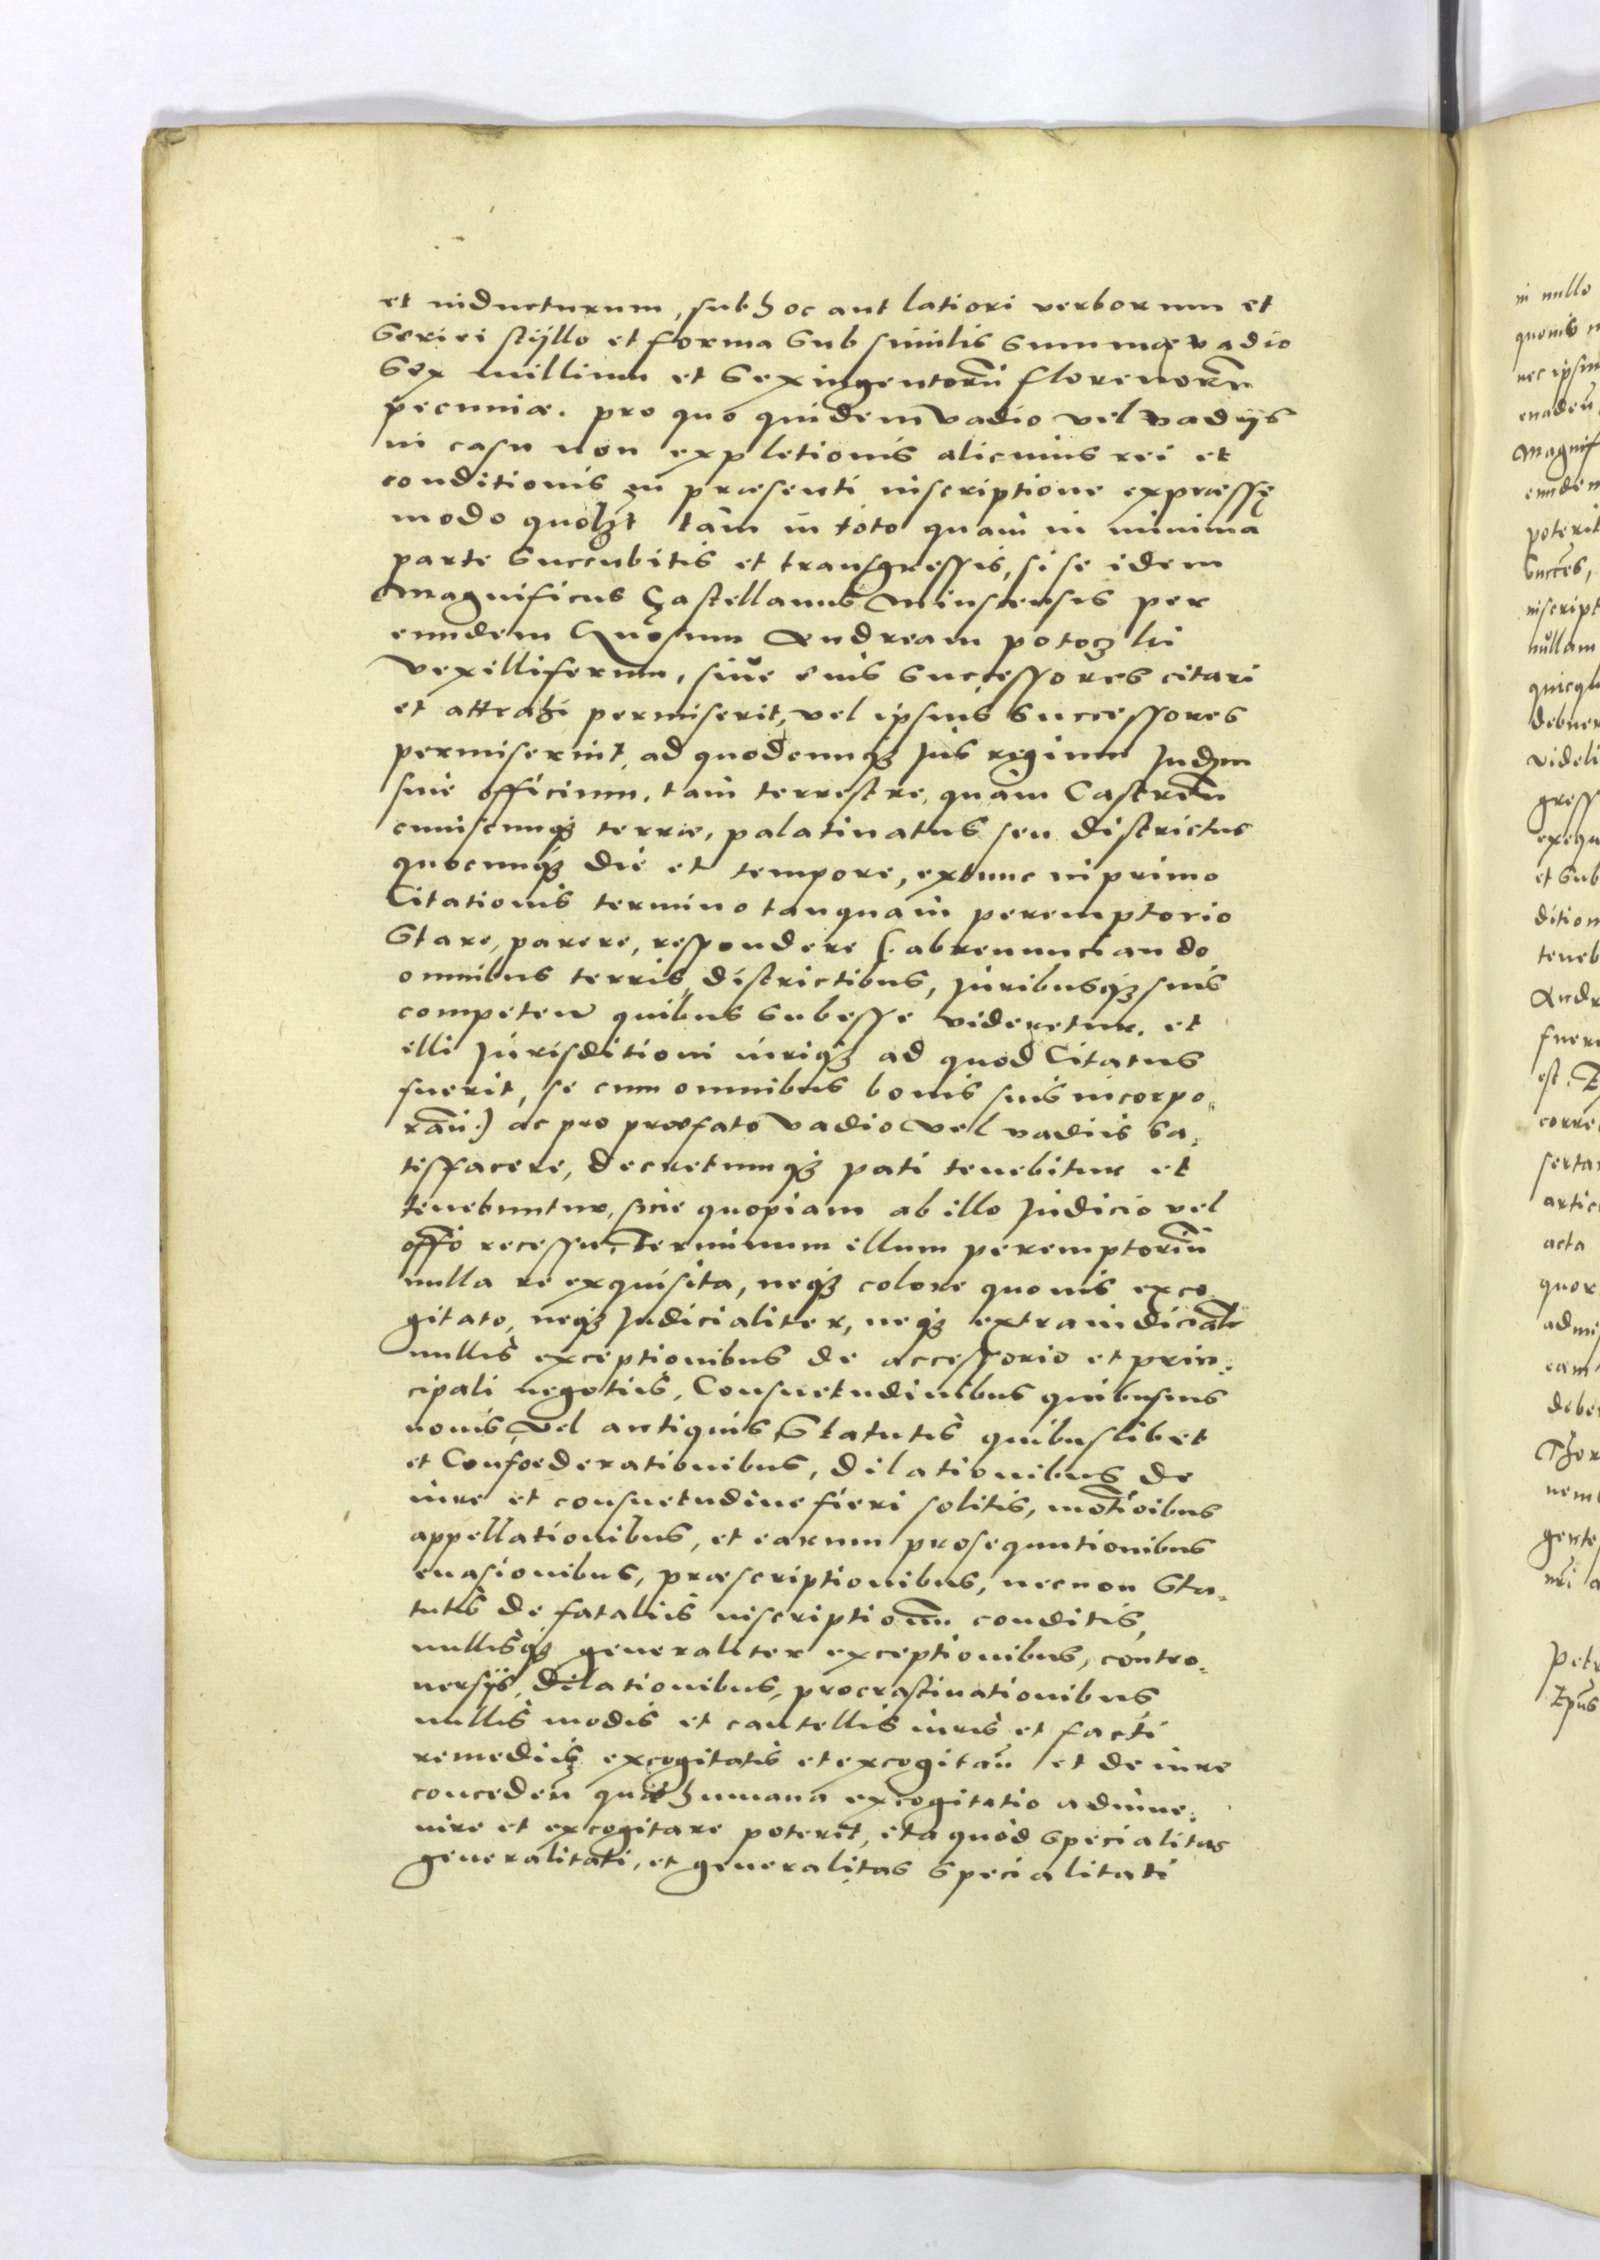 et inducturum, sub hoc aut latiori verborum et
seriei styllo et forma sub similis summæ vadio
sex millium et sexingentorũ florenorũ
pecuniæ. pro quo quidem vadio vel vadiis
in casu non expletionis alicuius rei et
conditionis in præsenti inscriptione expressę
modo quolȝt tam in toto quam in minima
parte succubitis et transgressis, si se idem
Magnificus Castellanus Minscensis per
eundem Gñosum Andream potoczki
Vexilliferum, siue eius successores citari
et attrahi permiserit, vel ipsius successores
permiserint, ad quodcunqȝ Jus regium Judm
siue officium, tam terrestre, quam Castreñ
cuiuscunqȝ terræ, palatinatus seu districtus
quocunqȝ die et tempore, extunc in primo
Citationis termino tanquam peremptorio
stare, parere, respondere (. abrenunciando
omnibus terris, districtibus, Juribusqȝ suis
competeñ quibus subesse videretur, et
illi Jurisditioni iuriqȝ ad quod Citatus
fuerit, se cum omnibus bonis suis incorpo,
rañ:) ac pro præfato vadio vel vadiis sa,
tisfacere, decretumqȝ pati tenebitur et
tenebuntur, sine quopiam ab illo Judicio vel
offõ recessu, Terminum illum peremptoriũ
nulla re exquisita, neqȝ colore quouis exco
gitato, neqȝ Judicialiter, neqȝ extraiudicialr
nullis exceptionibus de accessorio et prin:
cipali negotiis, Consuetudinibus quibusuis
nouis, vel antiquis, Statutis quibuslibet
et Confoederationibus, dilationibus de
iure et consuetudine fieri solitis, motioibus
appellationibus, et earum prosequutionibus
euasionibus, præscriptionibus, necnon sta,
tutis de fataliis inscriptionũ conditis,
nullisqȝ generaliter exceptionibus, contro:
uersÿs, dilationibus, procrastinationibus
nullis modis et cautellis iuris et facti
remediis excogitatis et excogitañ et de iure
concedeñ quæ humana excogitatio adinue:
nire et excogitare poterit, ita quod specialitas
generalitati, et generalitas specialitati